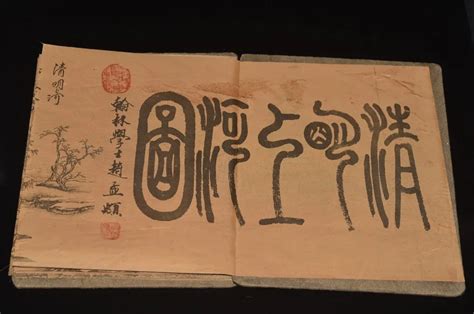 清明上河圖
翰林學士趙孟頫
清明河